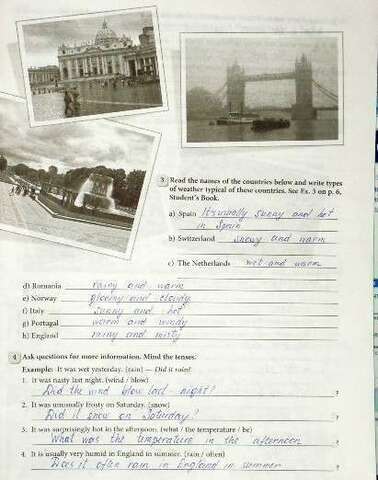 3 Read the names of the countries below and write types
of weather typical of these countries. See Ex. 3 on p. 6,
Student's Book.
a) Spain It's usually sunny and hot
in Spain
b) Switzerland snowy and warm
c) The Netherlands wet and warm
d) Romania rainy and warm
e) Norway gloomy and cloudy
f) Italy sunny and hot
g) Portugal warm and windy
h) England rainy and misty
4 Ask questions for more information. Mind the tenses.
Example: It was wet yesterday. (rain) — Did it rain?
1. It was nasty last night. (wind / blow)
Did the wind blow last night?
2. It was unusually frosty on Saturday. (snow)
Did it snow on Saturday?
3. It was surprisingly hot in the afternoon. (what / the temperature / be)
What was the temperature in the afternoon ?
4. It is usually very humid in England in summer. (rain / often)
Does it often rain in England in summer ?